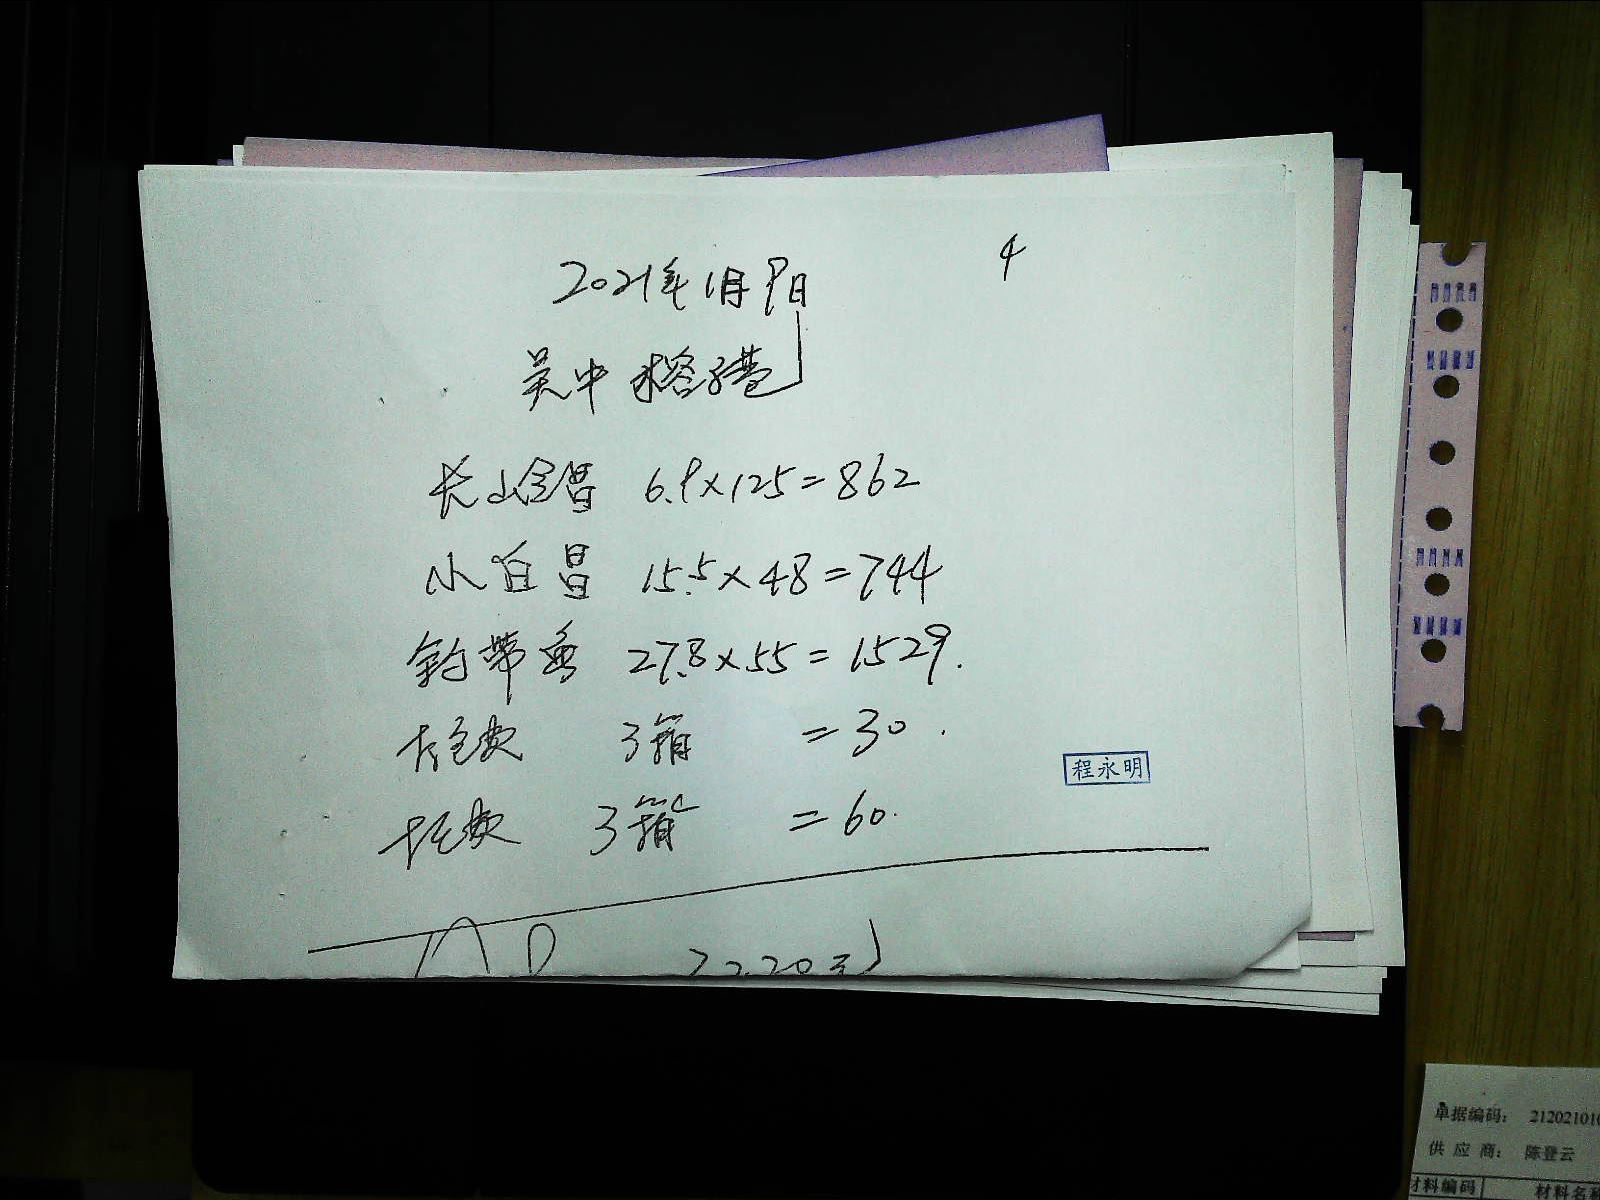 4
2021年1月9日
吴中 榕港
长山仓昌 6.9×125=862
小白昌 15.5×48=744
钓带鱼 27.8×55=1529.
包费 3箱 =30.
托费 3箱 =60.
程永明
单据编码: 212021010
供应商: 陈登云
材料编码 材料名称